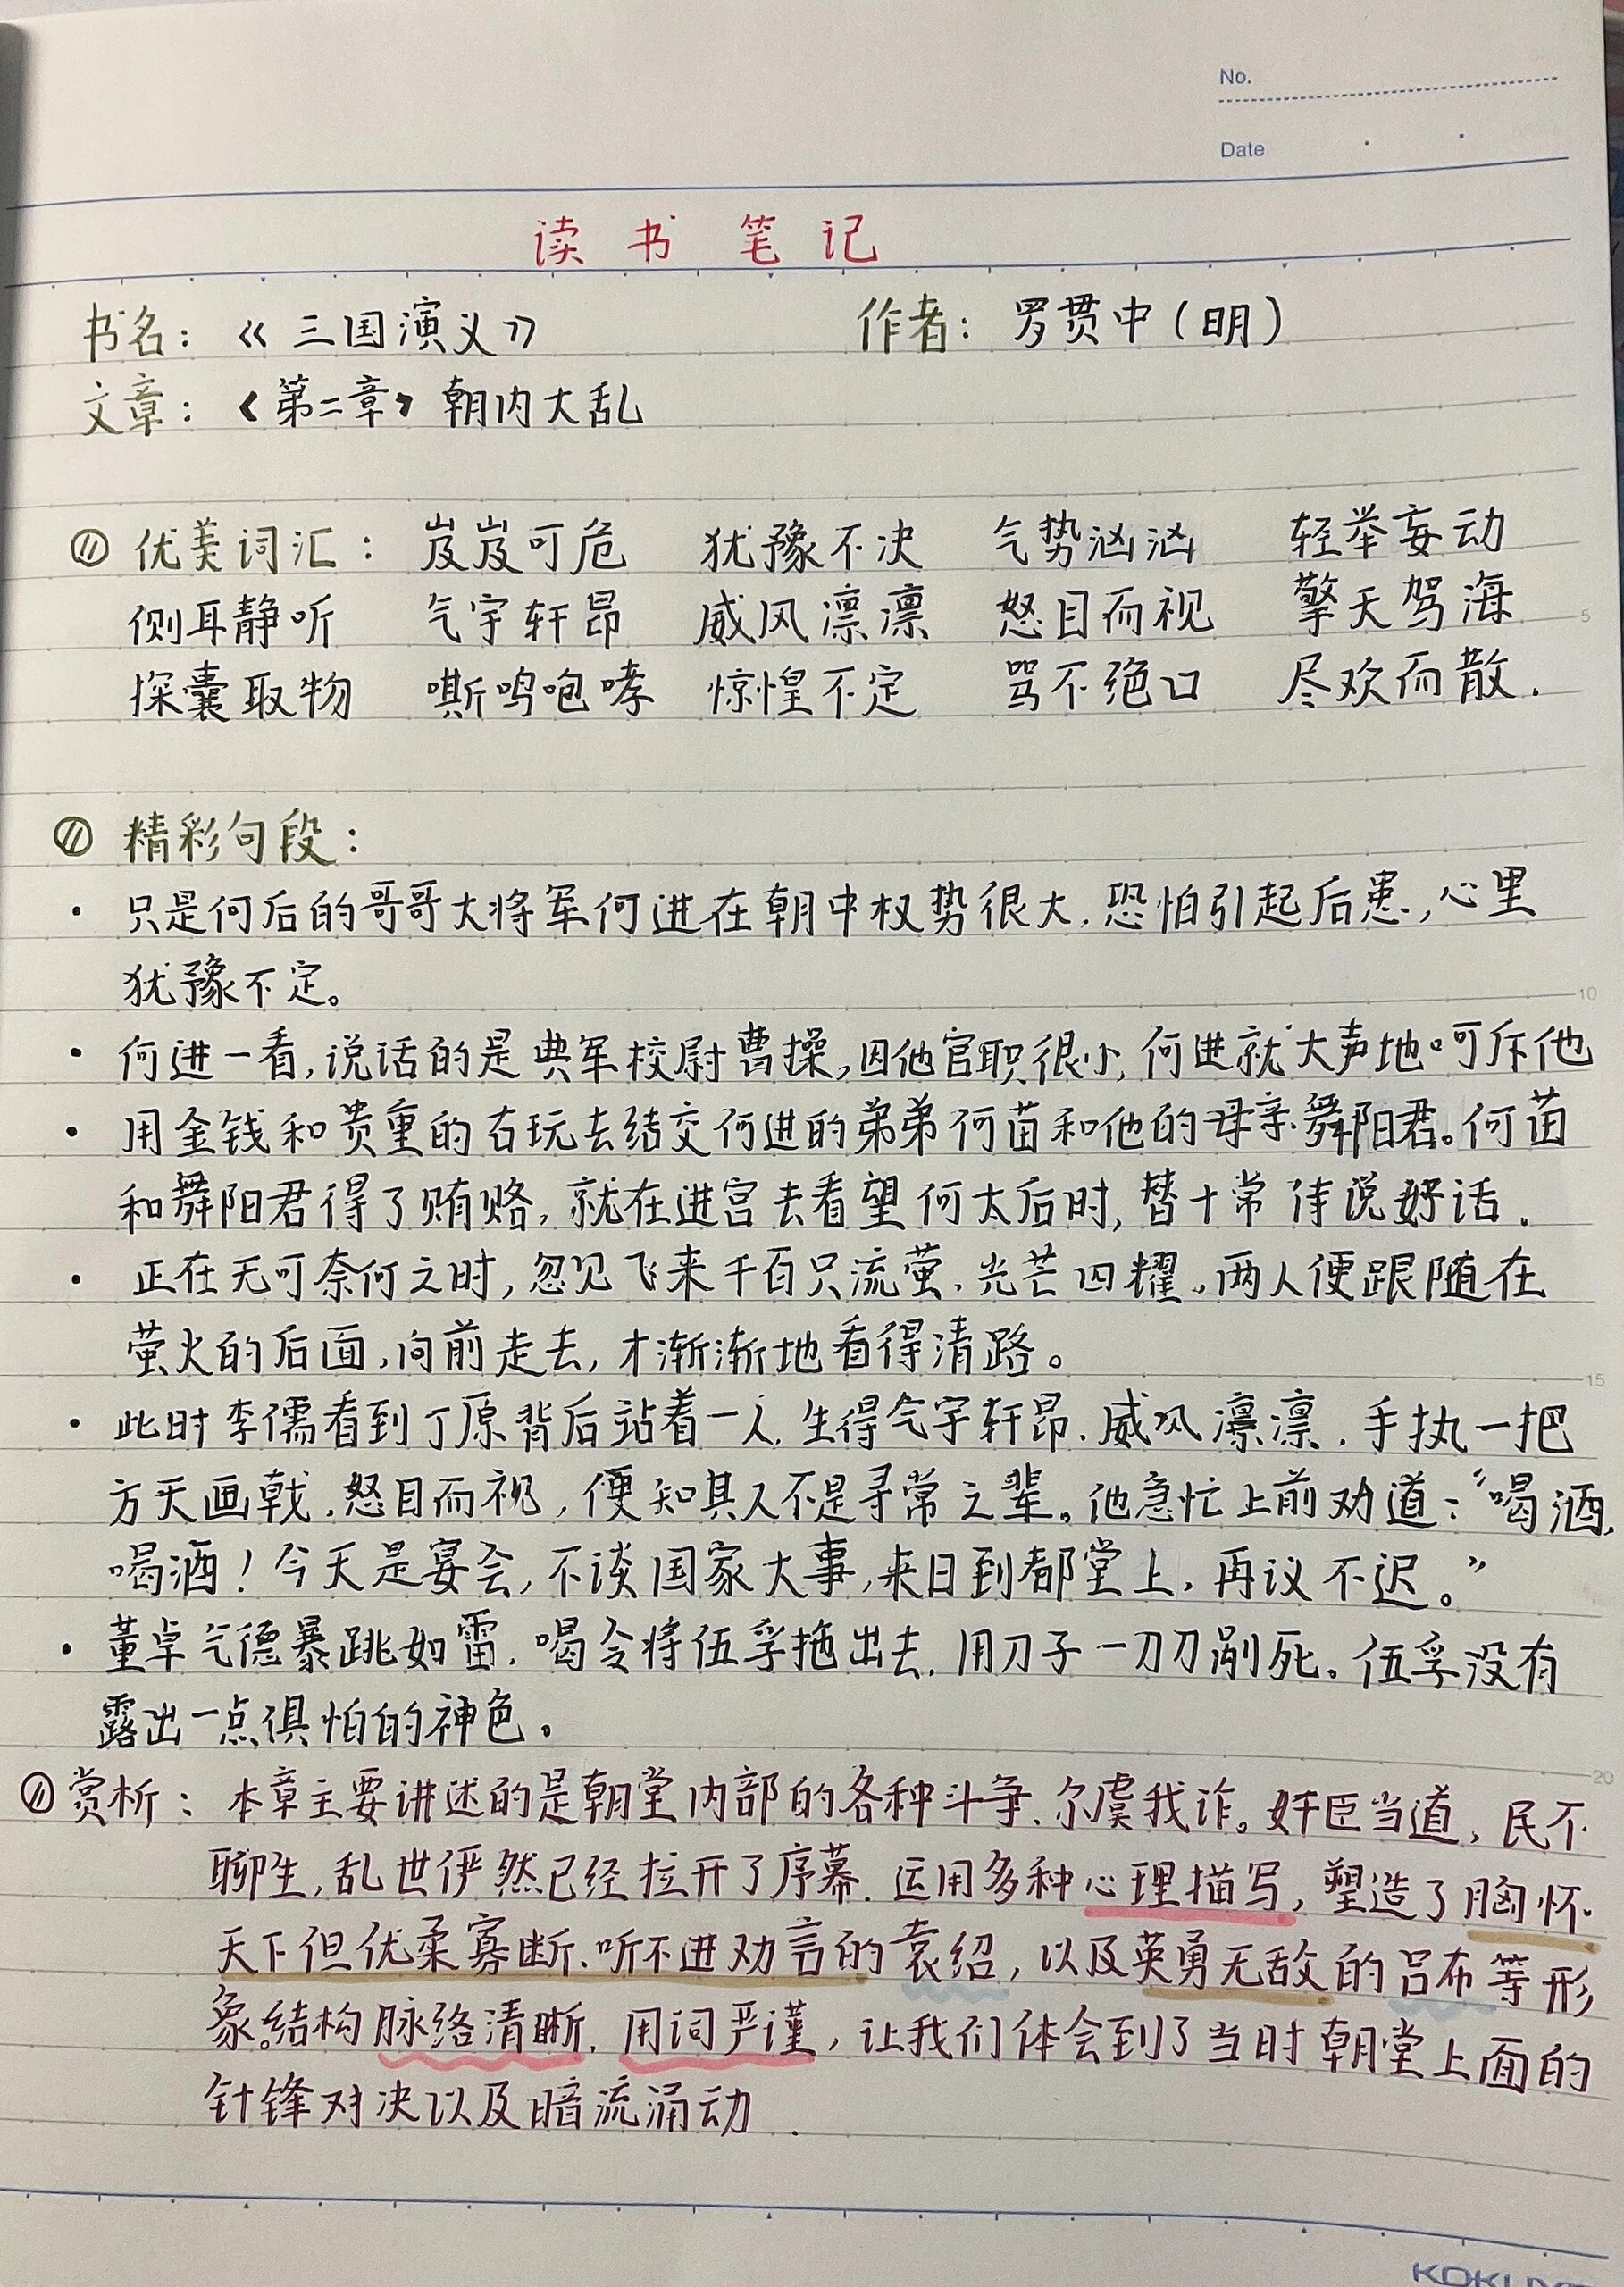 No.
Date
读书笔记
书名：《三国演义》 作者：罗贯中（明）
文章：《第二章》朝内大乱
优美词汇：岌岌可危 犹豫不决 气势汹汹 轻举妄动
侧耳静听 气宇轩昂 威风凛凛 怒目而视 擎天驾海
探囊取物 嘶鸣咆哮 惊惶不定 骂不绝口 尽欢而散.
精彩句段：
· 只是何后的哥哥大将军何进在朝中权势很大,恐怕引起后患,心里
犹豫不定。
· 何进一看,说话的是典军校尉曹操,因他官职很小,何进就大声地呵斥他
· 用金钱和贵重的古玩去结交何进的弟弟何苗和他的母亲舞阳君。何苗
和舞阳君得了贿赂,就在进宫去看望何太后时,替十常侍说好话.
· 正在无可奈何之时,忽见飞来千百只流萤,光芒四耀,两人便跟随在
萤火的后面,向前走去,才渐渐地看得清路。
· 此时李儒看到丁原背后站着一人,生得气宇轩昂.威风凛凛.手执一把
方天画戟,怒目而视,便知其人不是寻常之辈。他急忙上前劝道："喝酒,
喝酒!今天是宴会,不谈国家大事,来日到都堂上,再议不迟。"
· 董卓气德暴跳如雷.喝令将伍孚拖出去.用刀子一刀刀剐死。伍孚没有
露出一点惧怕的神色。
赏析：本章主要讲述的是朝堂内部的各种斗争、尔虞我诈。奸臣当道,民不
聊生,乱世俨然已经拉开了序幕.运用多种心理描写,塑造了胸怀
天下但优柔寡断.听不进劝言的袁绍,以及英勇无敌的吕布等形
象。结构脉络清晰.用词严谨,让我们体会到了当时朝堂上面的
针锋对决以及暗流涌动.
5
10
15
20